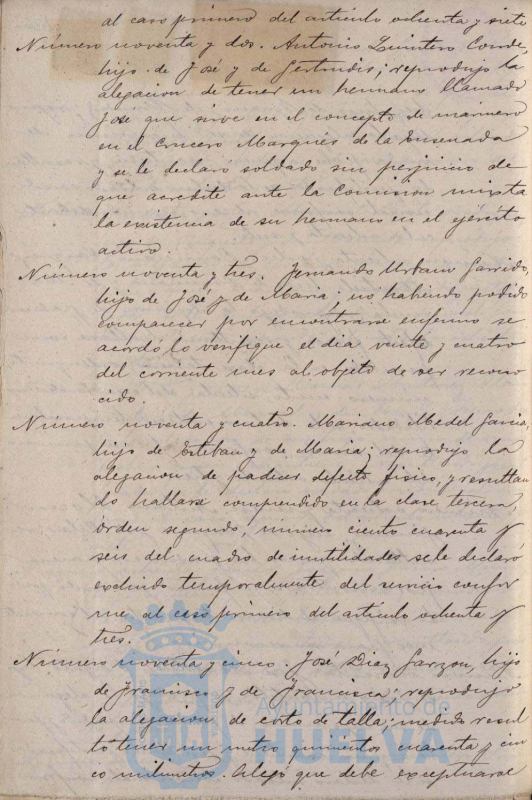 al caso primero del artículo ochenta y siete
Número noventa y dos. Antonio Quintero Conde,
hijo de José y de Gertrudis; reprodujo la
alegacion de tener un hermano llamado
José que sirve en el concepto de marinero
en el Crucero Marqués de la Ensenada
y se le declaró soldado sin perjuicio de
que acredite ante la Comision mixta
la existencia de su hermano en el ejército
activo.
Número noventa y tres. Fernando Urbano Garrido,
hijo de José y de Maria; no habiendo podido
comparecer por encontrarse enfermo se
acordó lo verifique el dia veinte y cuatro
del corriente mes al objeto de ser recono
cido.
Número noventa y cuatro. Mariano Medel Garcia,
hijo de Esteban y de Maria; reprodujo la
alegacion de padecer defecto físico, y resultan
do hallarse comprendido en la clase tercera,
orden segundo, número ciento cuarenta y
seis del cuadro de inutilidades se le declaró
excluido temporalmente del servicio confor
me al caso primero del artículo ochenta y
tres.
Número noventa y cinco. José Diaz Garzon, hijo
de Francisco y de Francisca; reprodujo
la alegacion de corto de talla; medido resul
to tener un metro quinientos cuarenta y cin
co milimetros. Alegó que debe exceptuarse
Ayuntamiento de
HUELVA